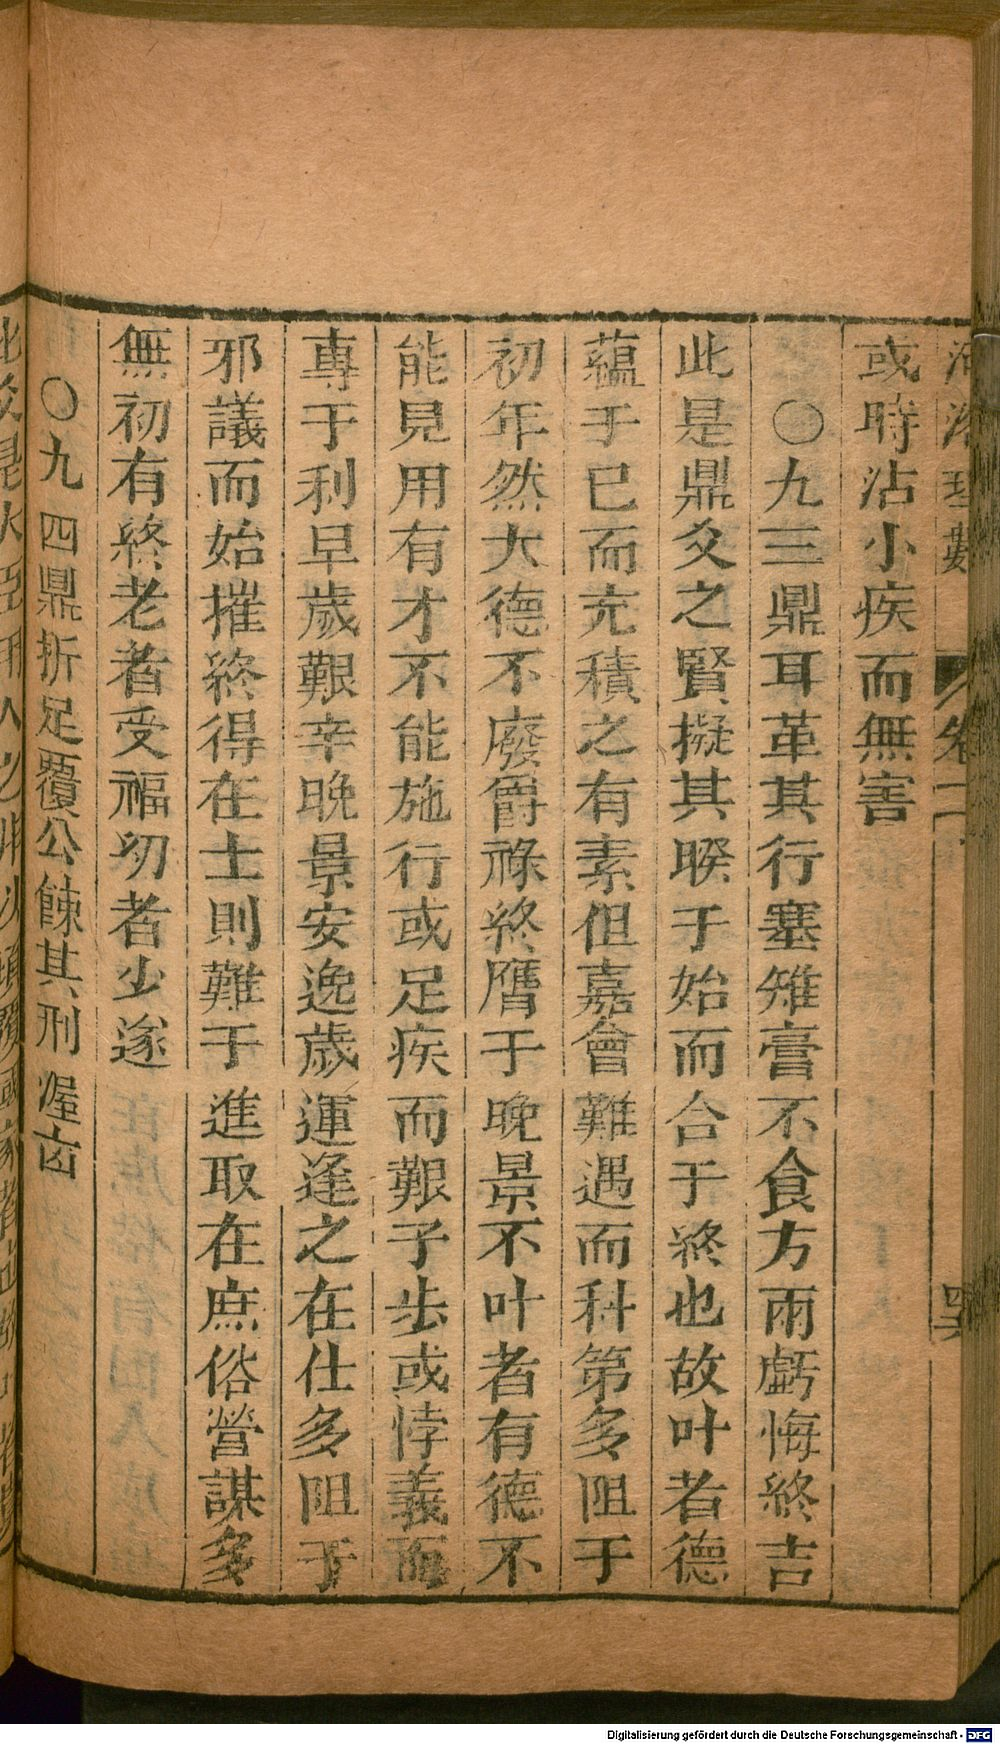 河洛理數
卷二
或時沾小疾而無害
○九三鼎耳革其行塞雉膏不食方雨虧悔終吉
此是鼎爻之賢擬其暌于始而合于終也故叶者德
蘊于已而充積之有素但嘉會難遇而科第多阻于
初年然大德不廢爵祿終膺于晚景不叶者有德不
能見用有才不能施行或足疾而艱子步或悖義而
專于利早歲艱辛晚景安逸歲運逢之在仕多阻于
邪議而始摧終得在士則難于進取在庶俗營謀多
無初有終老者受福幼者少遂
○九四鼎折足覆公餗其刑渥㐫
Digitalisierung gefördert durch die Deutsche Forschungsgemeinschaft - DFG